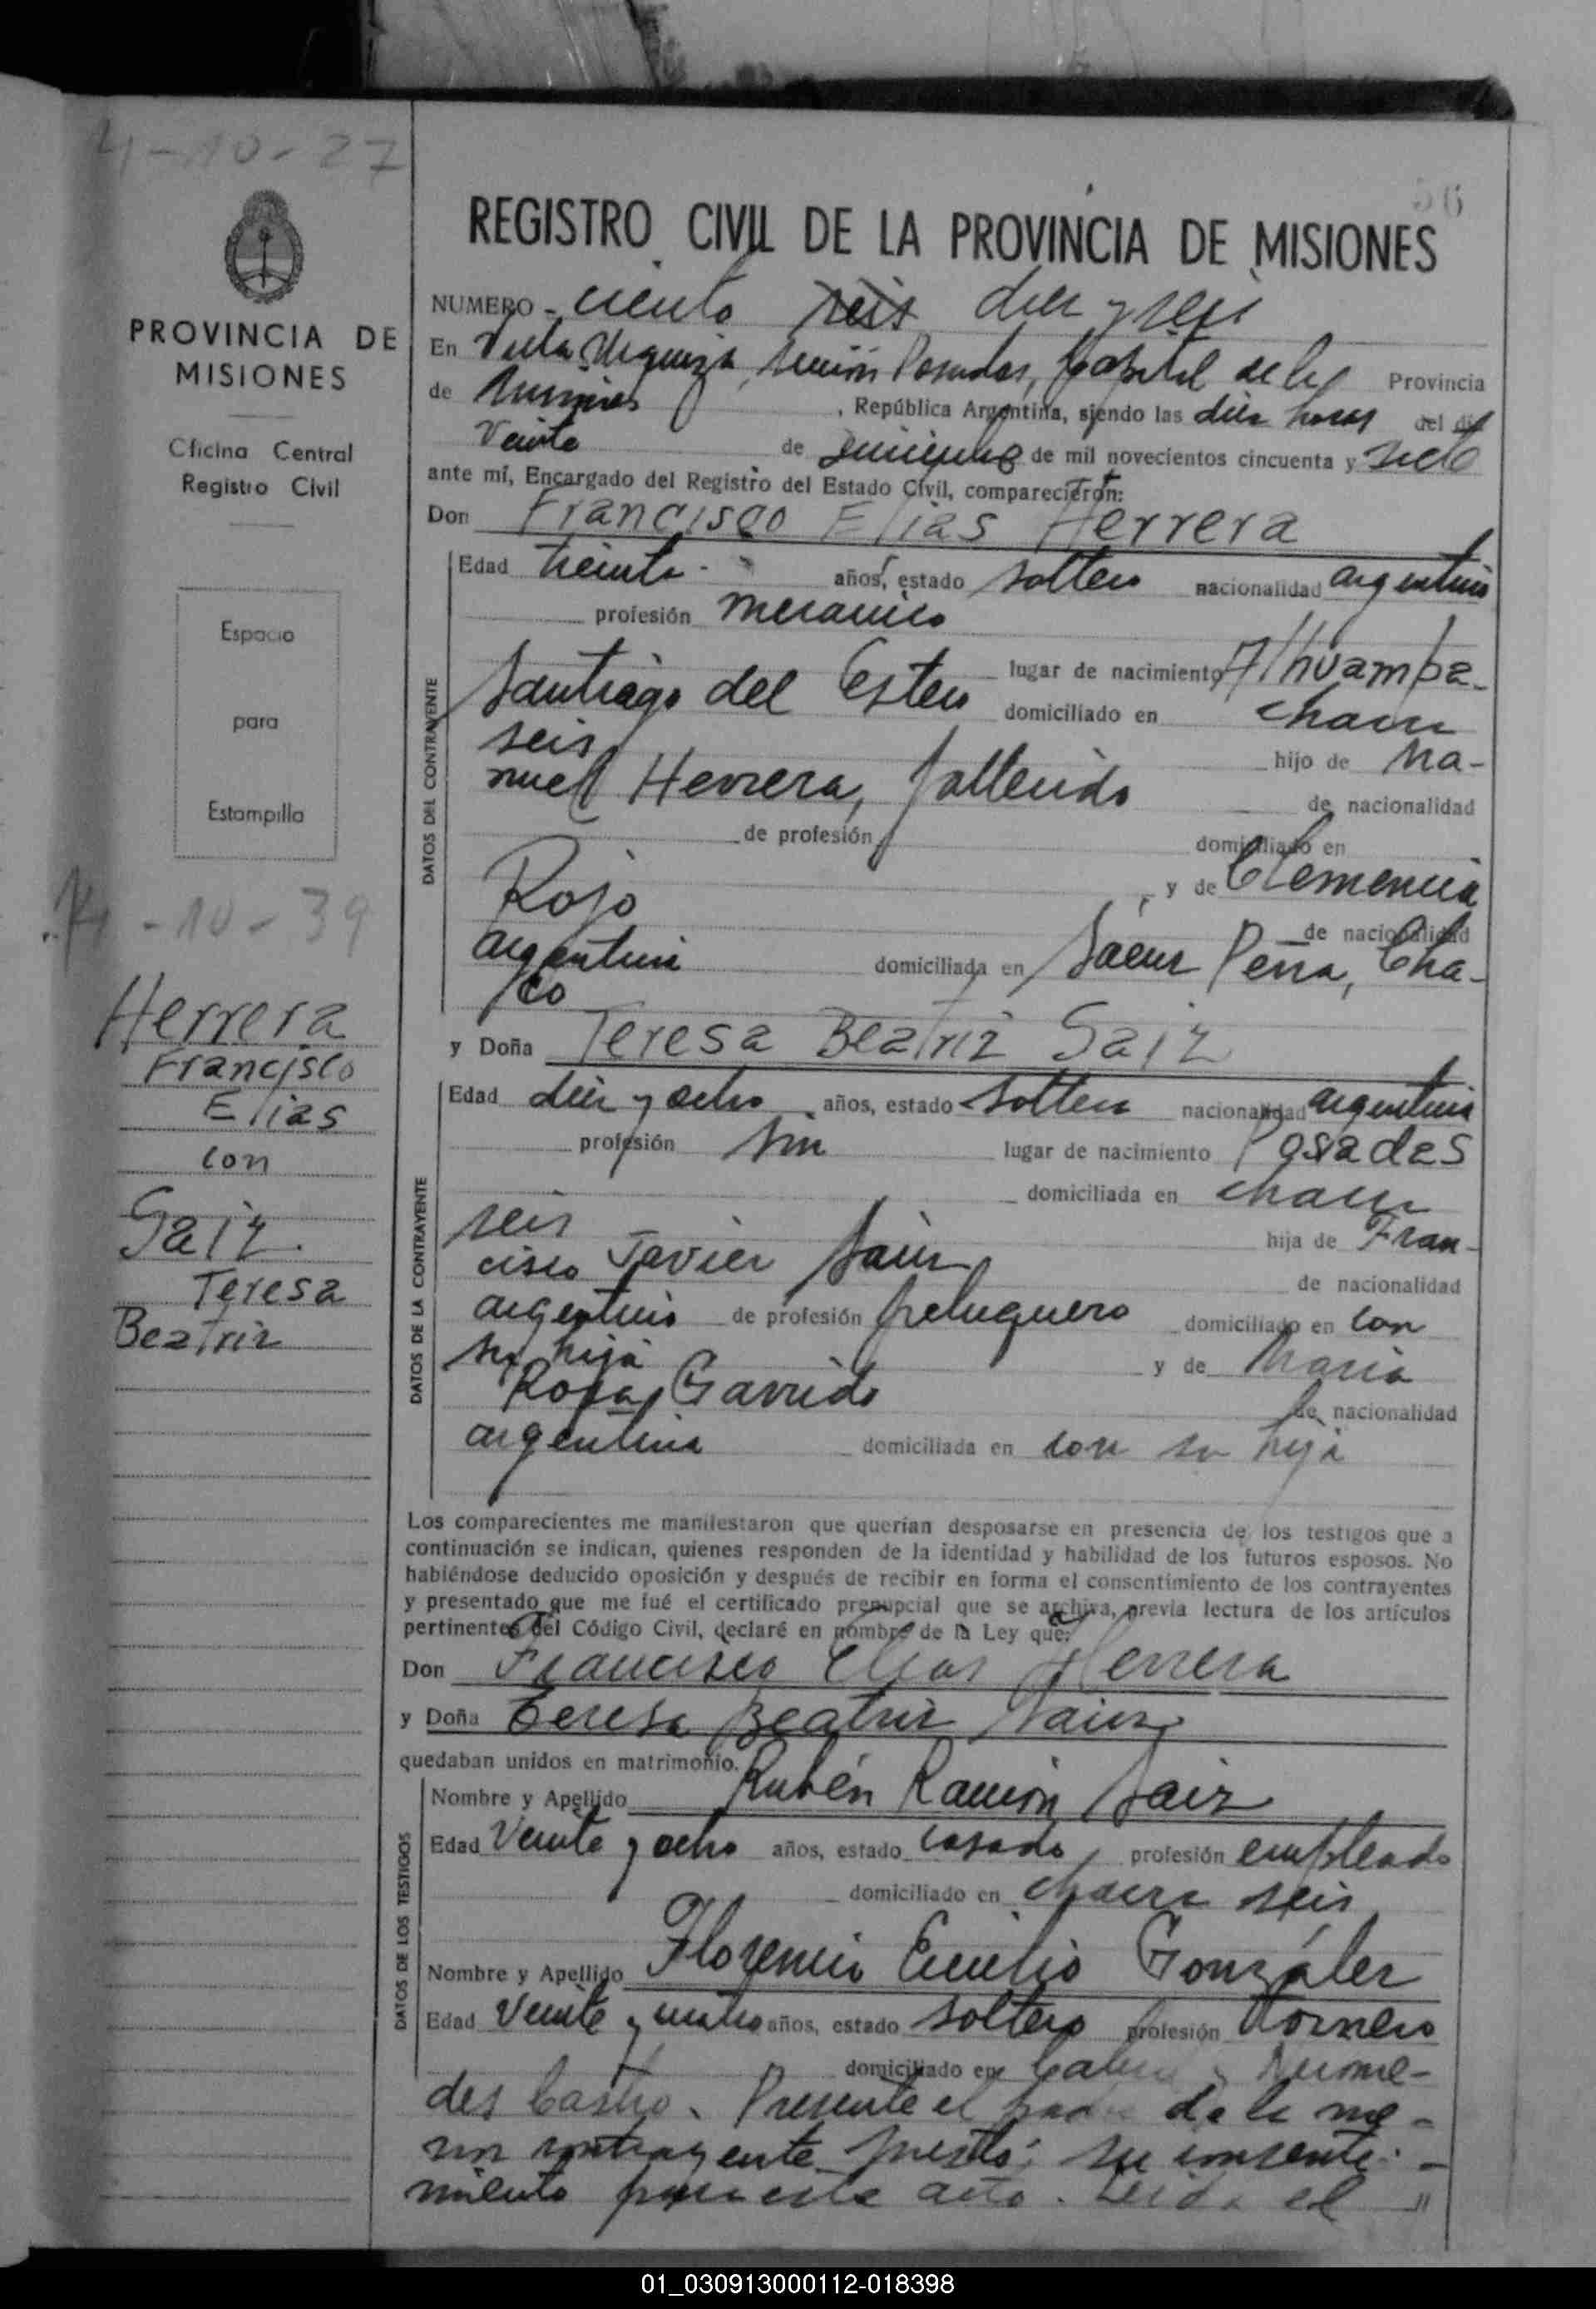 4-10-27
56
PROVINCIA DE
MISIONES
Oficina Central
Registro Civil
Espacio
para
Estampilla
-10-39
Herrera
Francisco
Elias
con
Saiz
Teresa
Beatriz
REGISTRO CIVIL DE LA PROVINCIA DE MISIONES
NUMERO - ciento seis diez y seis
En Villa Urquiza, sección Posadas, Capital de la Provincia
de Misiones, República Argentina, siendo las diez horas del día
Veinte de de mil novecientos cincuenta y siete
ante mí, Encargado del Registro del Estado Civil, comparecieron:
Don Francisco Elias Herrera
DATOS DEL CONTRAYENTE
Edad treinta - años, estado soltero nacionalidad argentino
profesión mecanico
lugar de nacimiento Alhuampa-
Santiago del Estero domiciliado en chacra
seis hijo de Ma-
nuel Herrera, fallecido de nacionalidad
de profesión domiciliado en
y de Clemencia
Rojo de nacionalidad
argentina domiciliada en Saenz Peña, Cha-
co
y Doña Teresa Beatriz Saiz
DATOS DE LA CONTRAYENTE
Edad diez y ocho años, estado soltera nacionalidad argentina
profesión sin lugar de nacimiento Posadas
domiciliada en chacra
seis hija de Fran-
cisco Javier Saiz de nacionalidad
argentino de profesión peluquero domiciliado en con
su hija y de Maria
Rosa Garrido de nacionalidad
argentina domiciliada en con su hija
Los comparecientes me manifestaron que querían desposarse en presencia de los testigos que a
continuación se indican, quienes responden de la identidad y habilidad de los futuros esposos. No
habiéndose deducido oposición y después de recibir en forma el consentimiento de los contrayentes
y presentado que me fué el certificado prenupcial que se archiva, previa lectura de los artículos
pertinentes del Código Civil, declaré en nombre de la Ley que:
Don Francisco Elias Herrera
y Doña Teresa Beatriz Saiz
quedaban unidos en matrimonio.
DATOS DE LOS TESTIGOS
Nombre y Apellido Rubén Ramón Saiz
Edad Veinte y ocho años, estado casado, profesión empleado
domiciliado en chacra seis
Nombre y Apellido Florencio Emilio González
Edad Veinte y cuatro años, estado soltero profesión tornero
domiciliado en
des Castro. Presente el padre de la me-
nor contrayente prestó su consenti-
miento para este acto. Leida el
01_030913000112-018398